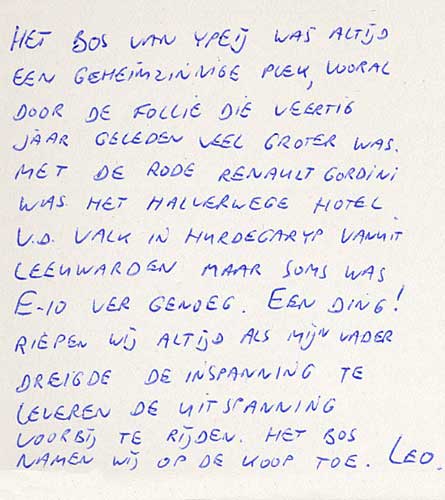 HET BOS VAN YPEIJ WAS ALTIJD
EEN GEHEIMZINNIGE PLEK, VOORAL
DOOR DE FOLLIE DIE VEERTIG
JAAR GELEDEN VEEL GROTER WAS.
MET DE RODE RENAULT GORDINI
WAS HET HALVERWEGE HOTEL
V.D. VALK IN HURDEGARYP VANUIT
LEEUWARDEN MAAR SOMS WAS
E-10 VER GENOEG. EEN DING!
RIEPEN WIJ ALTIJD ALS MIJN VADER
DREIGDE DE INSPANNING TE
LEVEREN DE UITSPANNING
VOORBIJ TE RIJDEN. HET BOS
NAMEN WIJ OP DE KOOP TOE. LEO.